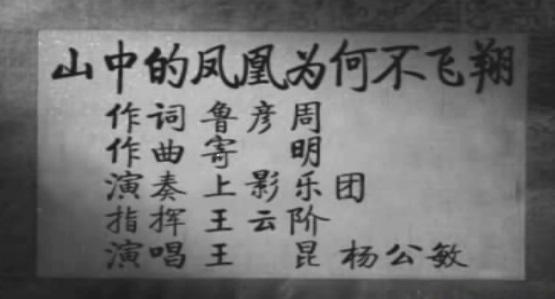 山中的凤凰为何不飞翔
作词 鲁彦周
作曲 寄 明
演奏 上影乐团
指挥 王云阶
演唱 王 昆 杨公敏